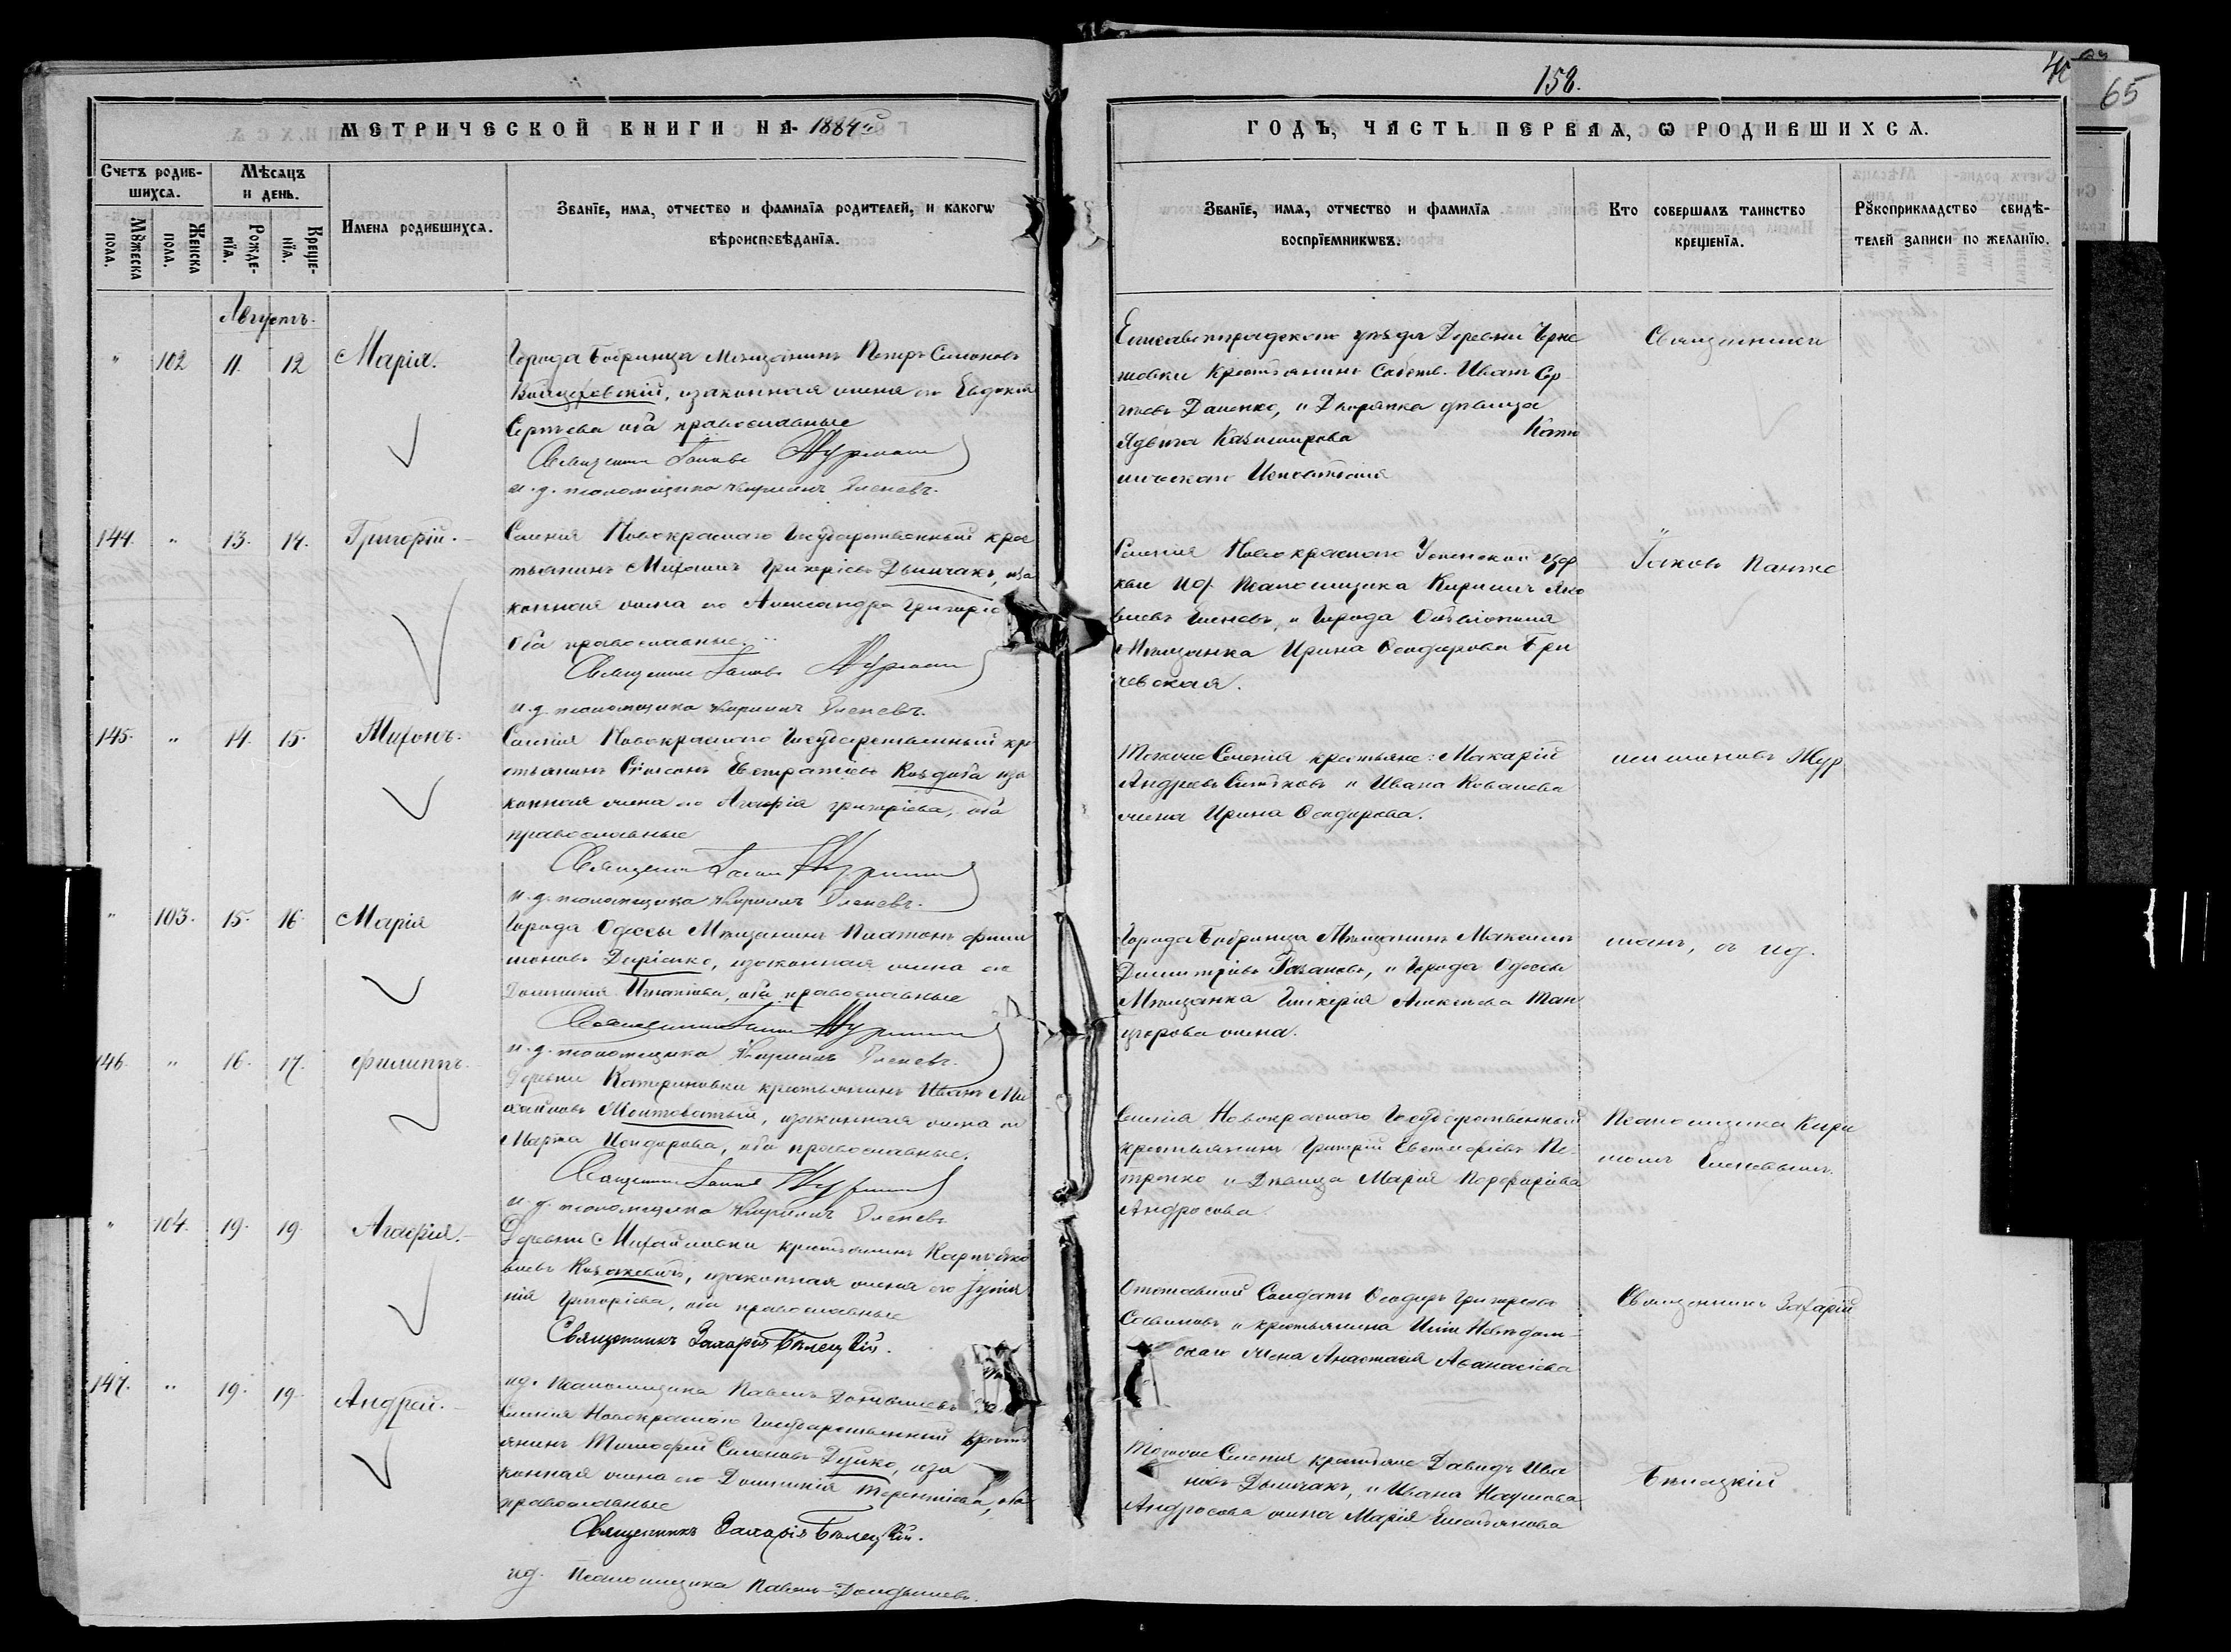 158.
65
МЕТРИЧЕСКОЙ КНИГИ НА 1884й
ГОДЪ, ЧАСТЬ ПЕРВАЯ, Ѡ РОДИВШИХСѦ.
Счетъ родив-
шихсѧ.
Мѣсяцъ
и день.
Мꙋжеска
пола.
Женска
пола.
Рожде-
нїѧ.
Креще-
нїѧ.
Имена родившихсѧ.
Званїе, имѧ, отчество и фамилїѧ родителей, и какогѡ
вѣроисповѣданїѧ.
Званїе, имѧ, отчество и фамилїѧ
воспрїемникѡвъ.
Кто совершалъ таинство
крещенїѧ.
Рꙋкоприкладство свидѣ-
телей записи по желанїю.
Августъ.
" 102 11. 12 Марія.
Города Бобринца Мѣщанинъ Петръ Симоновъ
Войцеховскій, изаконная жена его Евдокія
Сергѣева оба православные
Священникъ Іаковъ
и. д. псаломщика Кирилъ Еленевъ.
Елисаветградского уѣзда Деревни Черня
ховки Крестьянинъ Собств. Иванъ Сер
гѣевъ Даценко, и Дворянка дѣвица
Ядвига Казимирова Като
лическаго Исповѣданія
Священникъ
144. " 13. 14. Григорій.
Селенія Новокраснаго Государственный крес
тьянинъ Михаилъ Григорьевъ Дымчакъ, иза
конная жена его Александра Григорье
Оба православные.
Священникъ Іаковъ
и. д. псаломщика Кирилъ Еленевъ.
Селенія Новокраснаго Успенской цер
кви ид. Псаломщика Кирилъ Яко
влевъ Еленевъ, и Города
Мѣщанка Ирина Ѳеодорова Бри
чевская.
Іаковъ Панте
145. " 14. 15. Тихонъ.
Селенія Новокраснаго Государственный кре
стьянинъ Симеонъ Евстратіевъ Коздоба иза
конная жена его Агафія Григоріева, оба
православные
Священникъ Іаковъ
и. д. псаломщика Кирилъ Еленевъ.
Тогоже Селенія крестьяне: Макарій
Андреевъ Ситниковъ и Ивана Ковалева
жена Ирина Ѳеодорова.
леимоновъ Жур
" 103. 15. 16 Марія
Города Одессы Мѣщанинъ Платонъ Фили
моновъ Диріенко, изаконная жена его
Домникія Игнатіева, оба православные
Священникъ Іаковъ
и. д. псаломщика Кирилъ Еленевъ.
Города Бобринца Мѣщанинъ Максимъ
Димитріевъ Казановъ, и Города Одессы
Мѣщанка Гликерія Алексѣева Тан
цюрова жена.
манъ, съ ид.
146. " 16. 17. Филиппъ.
Деревни Катериновки крестьянинъ Иванъ Ми
хайловъ Молтоватый, изаконная жена его
Марѳа Исидорова, оба православные.
Священникъ Іаковъ
и. д. псаломщика Кирилъ Еленевъ
Селенія Новокраснаго Государственный
крестьянинъ Григорій Евстафіевъ Пе-
тренко и Дѣвица Марія Порфиріева
Андросова.
Псаломщика Кири
ломъ Еленевымъ.
" 104. 19. 19. Агафія.
Деревни Михайловки крестьянинъ Карпъ Яко
влевъ Козакевичъ, изаконная жена его
нія Григорьева, оба православные
Священникъ Захарій Бѣлецкій.
ид. Псаломщика Павелъ
Отставной Солдатъ Ѳеодоръ Григорьевъ
Савиновъ и крестьянина Ильи Невядом-
скаго жена Анастасія Аѳанасіева
Священникъ Захарій
147. " 19. 19. Андрей.
Селенія Новокраснаго Государственный крестья
янинъ Тимоѳей Симоновъ Дуйко, иза
конная жена его Домникія Терентіева, оба
православные
Священникъ Захарія Бѣлецкій.
ид. Псаломщика Павелъ
Тогоже Селенія крестьяне Давидъ Ива
новъ Дымчакъ, и Ивана Наумова
Андросова жена Марія Емельянова
Бѣлецкій